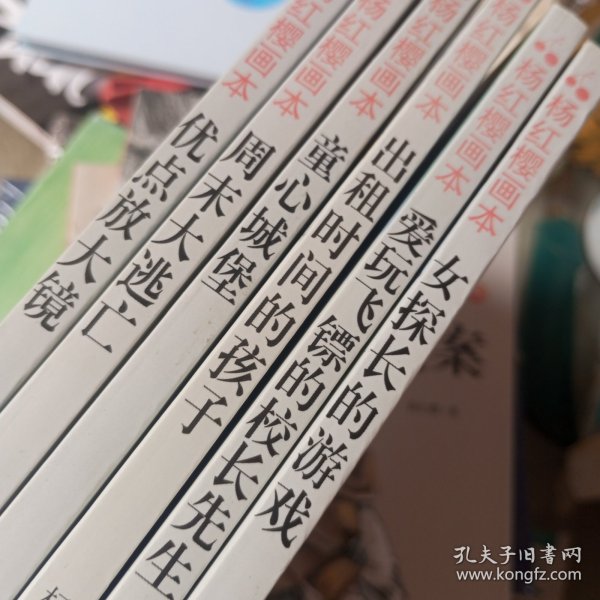 杨红樱画本
优点放大镜
杨红樱画本
周末大逃亡
杨红樱画本
童心城堡
杨红樱画本
出租时间的孩子
杨红樱画本
爱玩飞镖的校长先生
杨红樱画本
女探长的游戏
孔夫子旧书网
www.kongfz.com